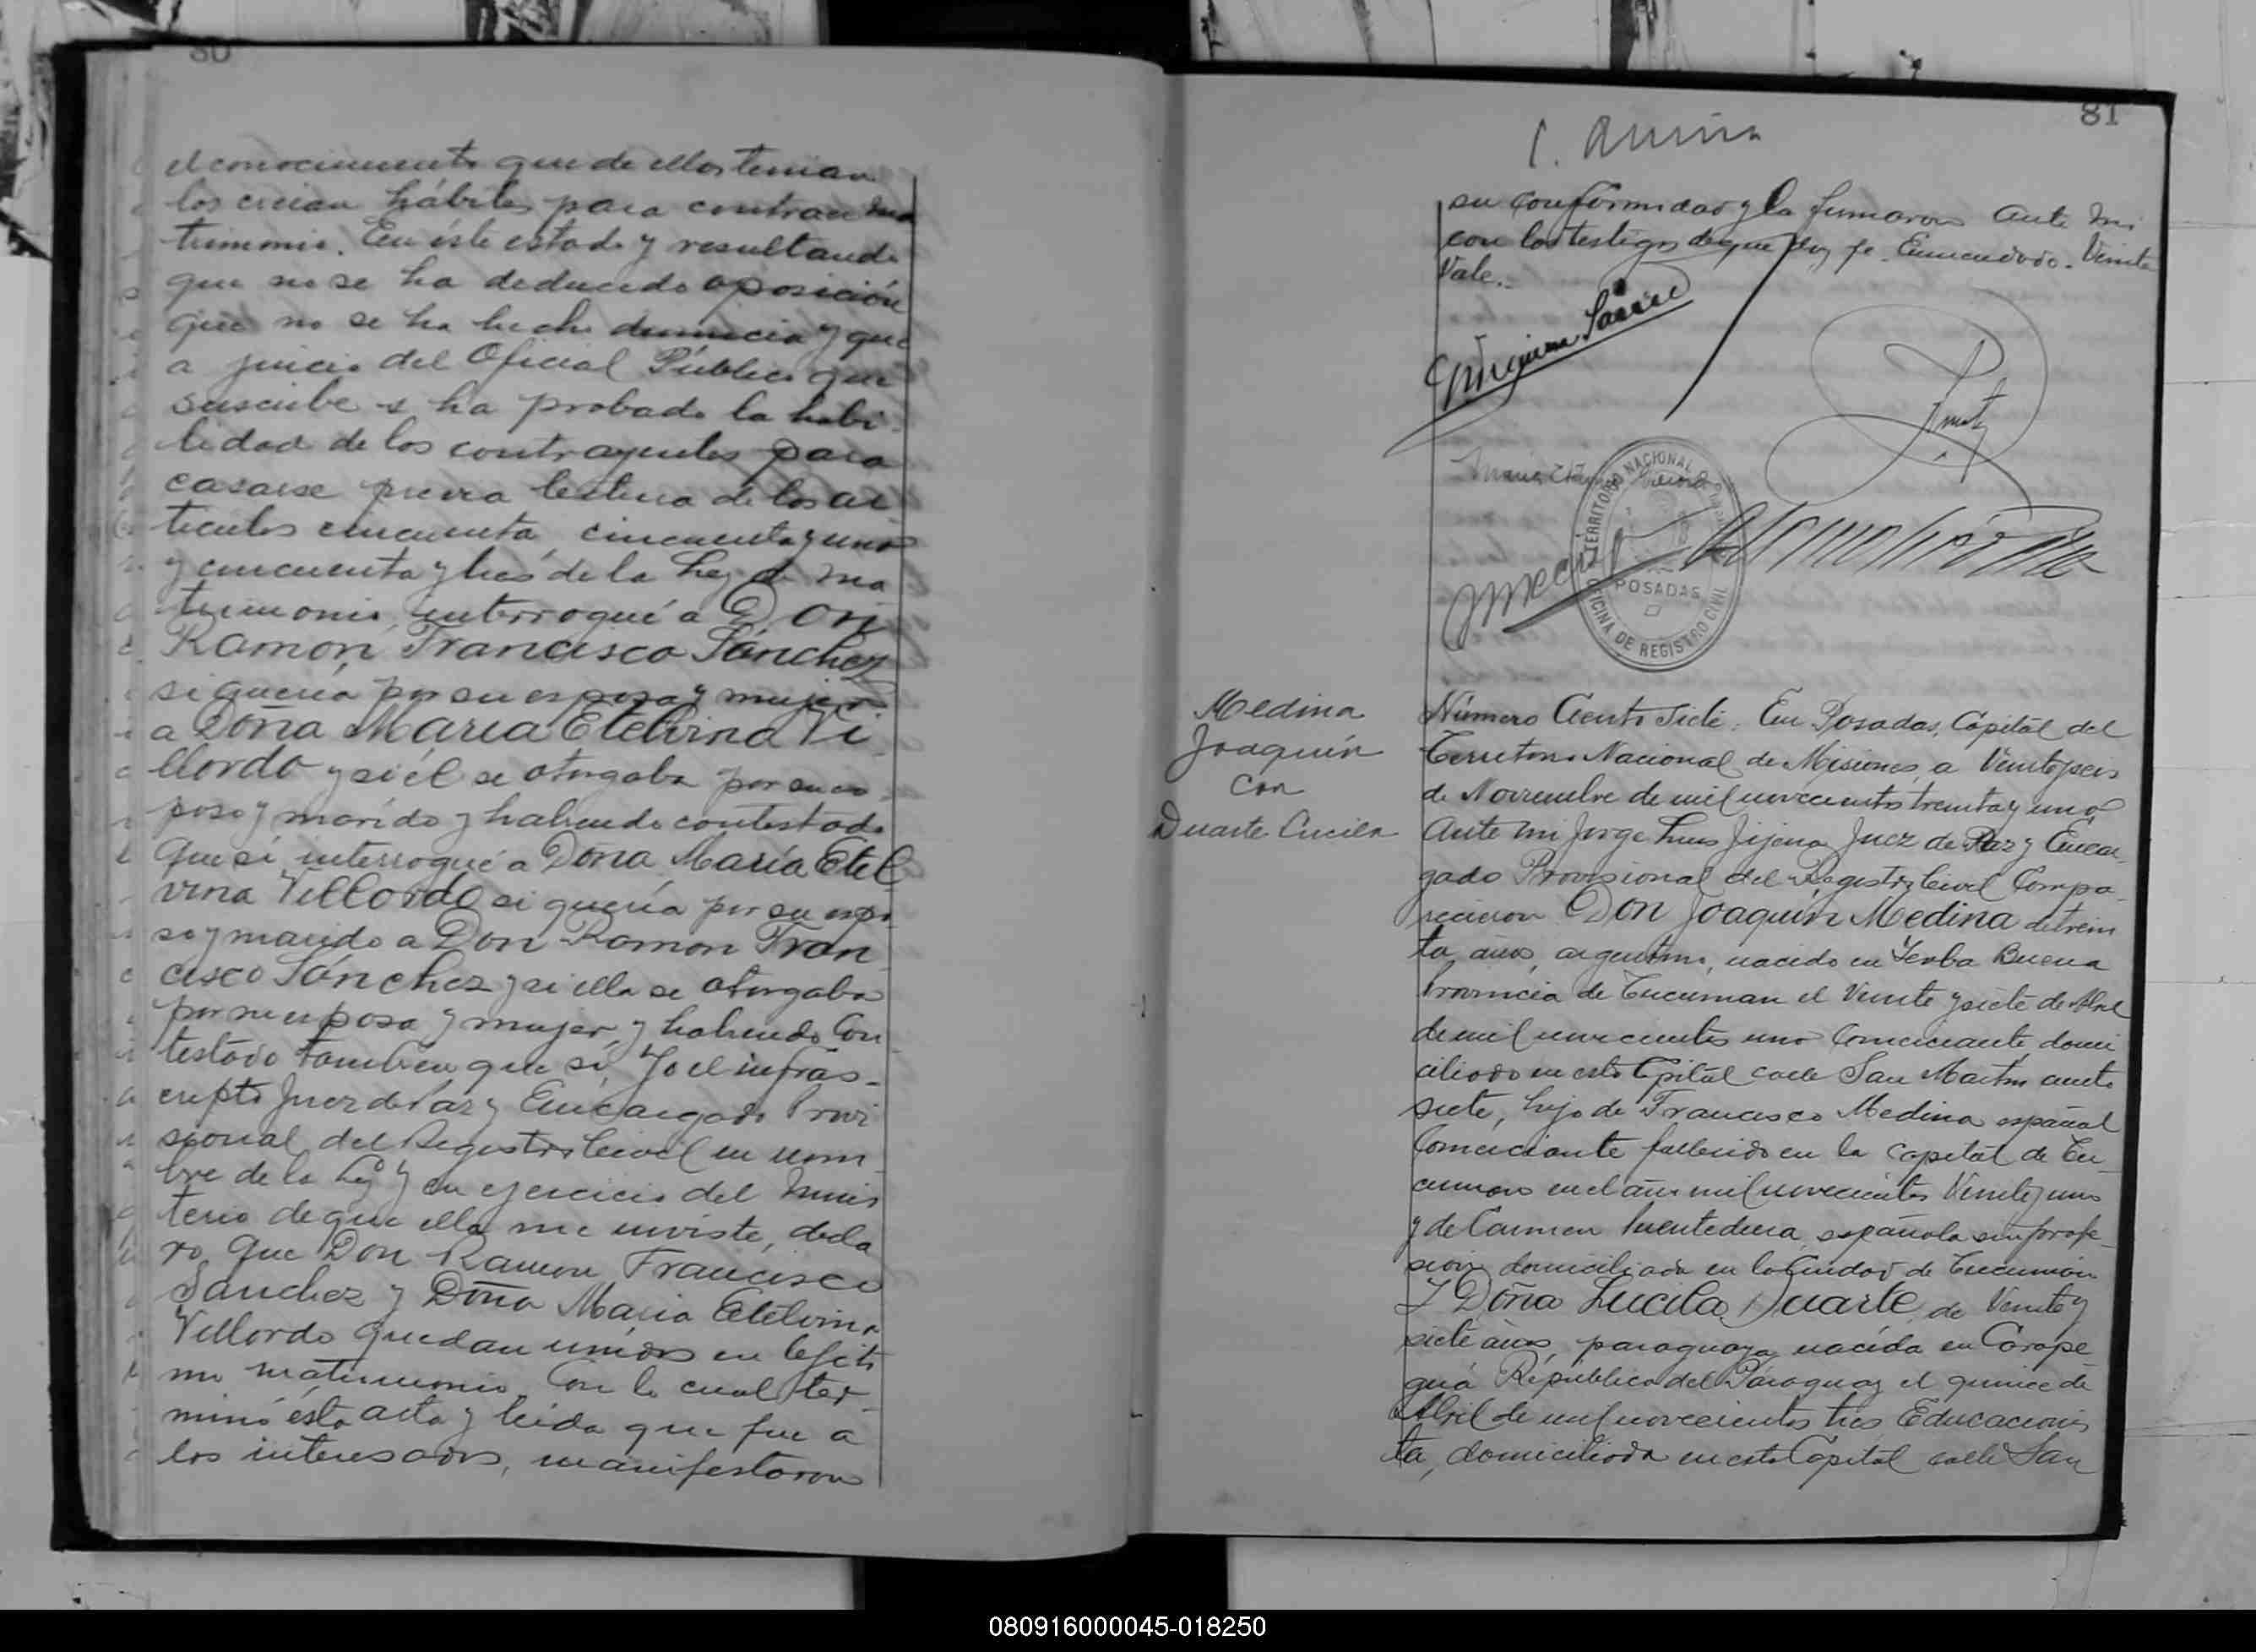 80
el conocimiento que de ellos tenian
los creian hábiles para contraer ma
trimonio. En éste estado y resultando
que no se ha deducido oposición
que no se ha hecho denuncia y que
a juicio del Oficial Público que
suscribe s ha probado la habi
lidad de los contrayentes para
casarse previa lectura de los ar
tículos cincuenta, cincuenta y uno
y cincuenta y tres de la Ley de Ma
trimonio, interrogué a Don
Ramón Francisco Sánchez
si quería por su esposa y mujer
a Doña María Etelvina Vi
llordo y si él se otorgaba por su es
poso y marido y habiendo contestado
que sí, interrogué a Doña María Etel
vina Villordo si quería por su espo
so y marido a Don Ramon Fran
cisco Sánchez y si ella se otorgaba
por su esposa y mujer, y habiendo Con
testado tambien que sí, Yo el infras-
cripto Juez de Paz y Encargado Provi
sional del Registro Civil en nom
bre de la Ley y en ejercicio del minis
terio de que ella me inviste, decla
ro que Don Ramon Francisco
Sanchez y Doña Maria Etelvina
Villordo quedan unidos en legiti
mo matrimonio. Con lo cual ter-
minó ésta acta y leída que fue a
los interesados, manifestaron
81
su conformidad y la firmaron ante mi
con los testigos de que doy fe. Enmendado. Veinte
Vale.
TERRITORIO NACIONAL
POSADAS
OFICINA DE REGISTRO CIVIL
Medina
Joaquín
con
Duarte Lucila
Número Ciento Siete: En Posadas, Capital del
Territorio Nacional de Misiones, a Veinteyseis
de Noviembre de mil novecientos treinta y uno
Ante mi Jorge Luis Jijena Juez de Paz y Encar-
gado Provisional del Registro Civil Compa-
recieron Don Joaquín Medina de trein
ta años, argentino, nacido en Yerba Buena
Provincia de Tucuman el Veinte y siete de Abril
de mil novecientos uno Comerciante domi
ciliado en esta Capital calle San Martin ciento
siete, hijo de Francisco Medina español
Comerciante fallecido en la Capital de Tu-
cuman en el año mil novecientos Veinte y uno
y de Carmen Puentedura, española sin profe-
sion domiciliada en la Ciudad de Tucumán
Y Doña Lucila Duarte, de Veinte y
siete años, paraguaya nacida en Carape
guá República del Paraguay el quince de
Abril de mil novecientos tres Educacionis
ta, domiciliada en esta Capital calle San
080916000045-018250